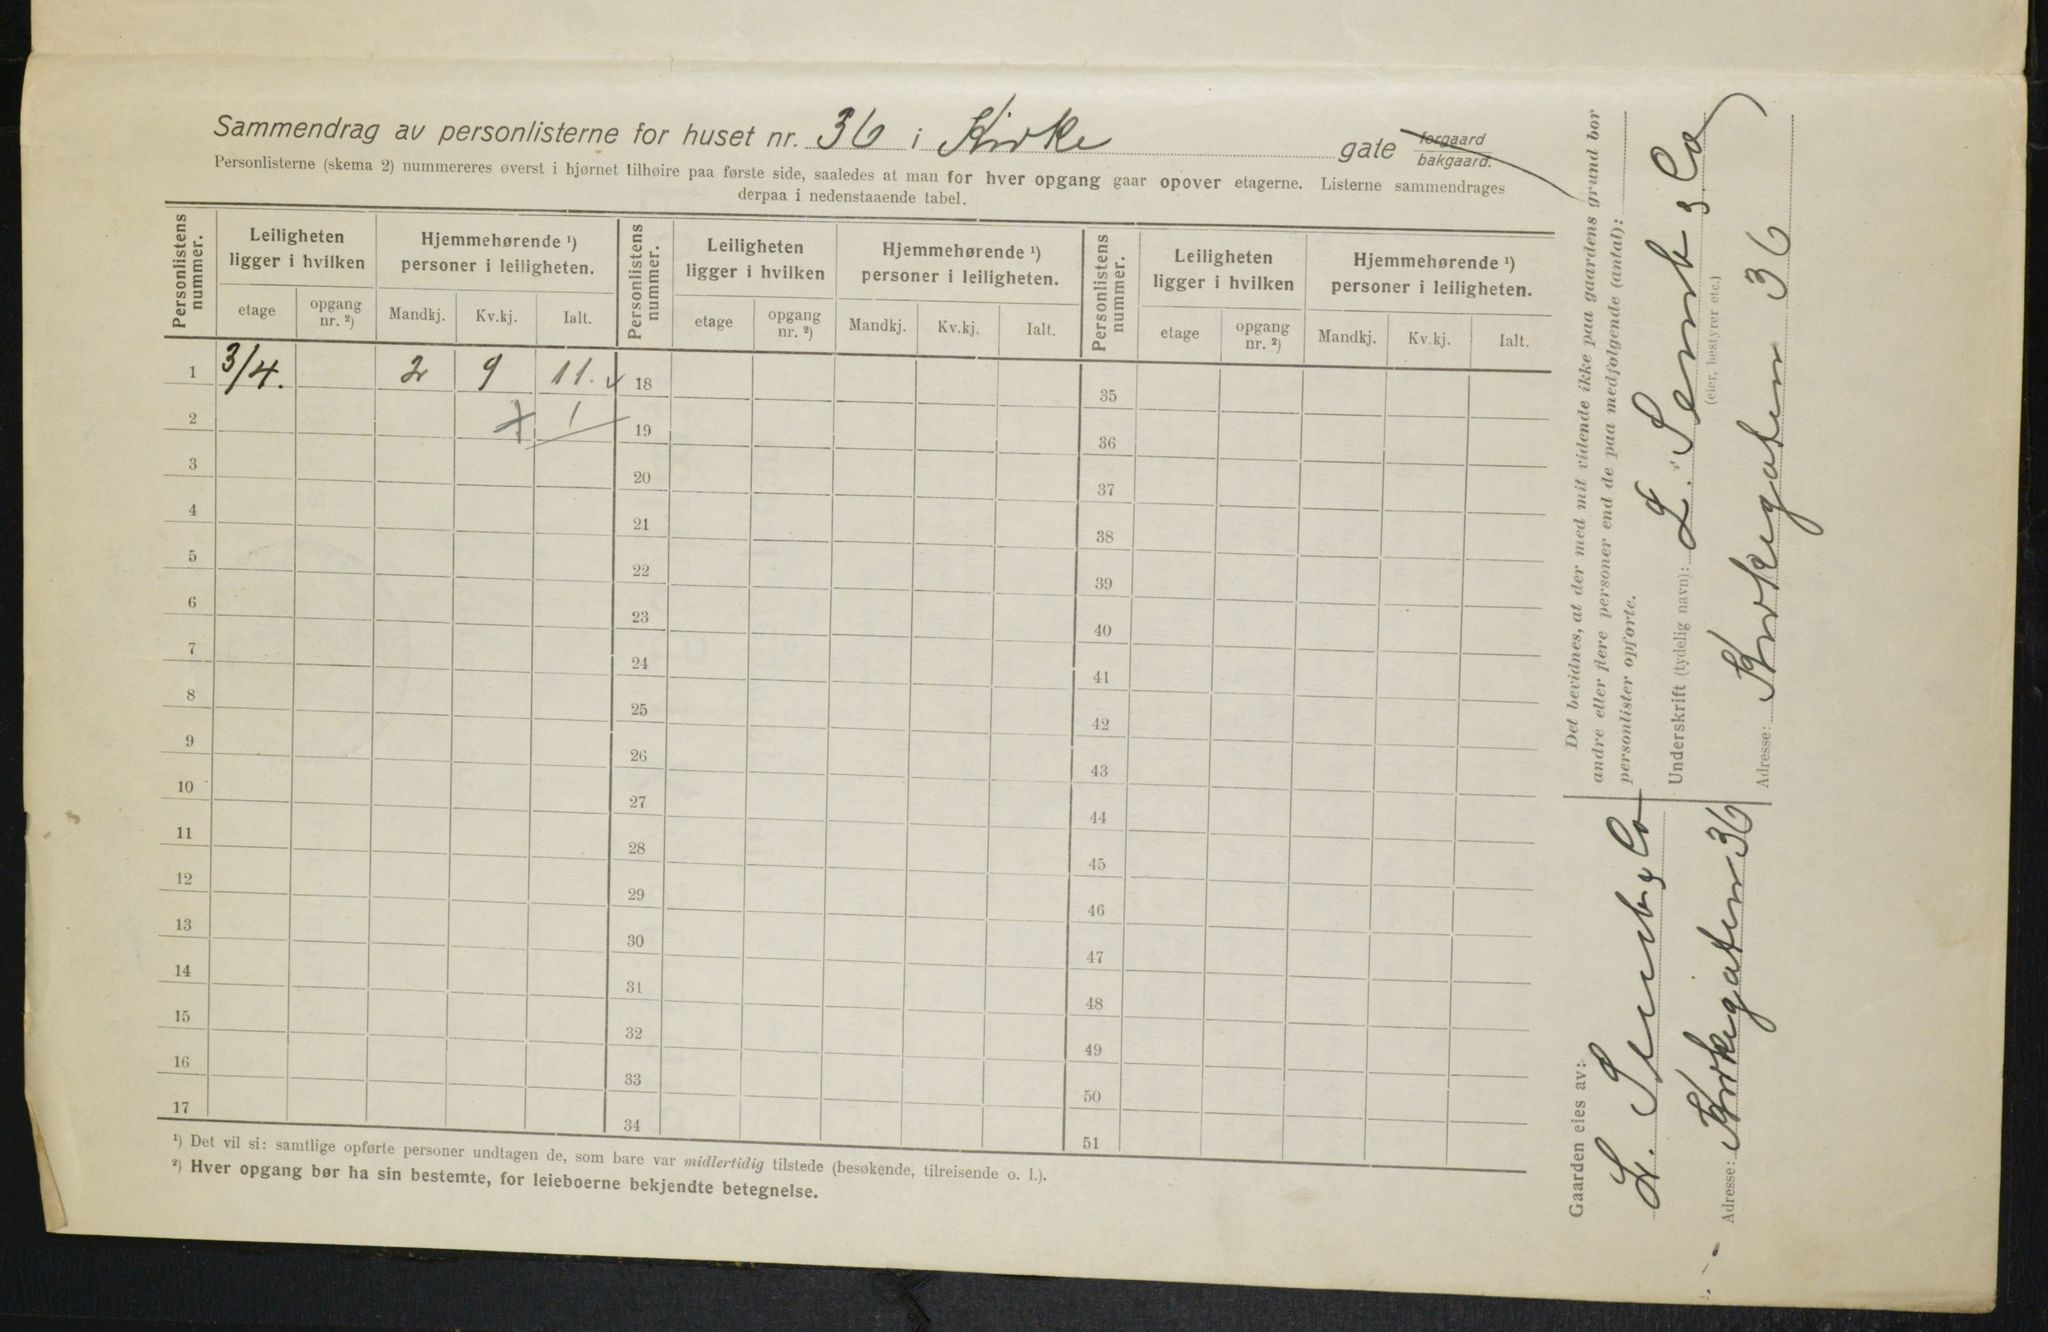 Sammendrag av personlisterne for huset nr. 36 i Kirke gate forgaard bakgaard.
Personlisterne (skema 2) nummereres øverst i hjørnet tilhøire paa første side, saaledes at man for hver opgang gaar opover etagerne. Listerne sammendrages
derpaa i nedenstaaende tabel.
Personlistens nummer. Leiligheten ligger i hvilken Hjemmehørende ¹) personer i leiligheten. Personlistens nummer. Leiligheten ligger i hvilken Hjemmehørende ¹) personer i leiligheten. Personlistens nummer. Leiligheten ligger i hvilken Hjemmehørende ¹) personer i leiligheten.
etage opgang nr. ²) Mandkj. Kv.kj. Ialt. etage opgang nr. ²) Mandkj. Kv.kj. Ialt. etage opgang nr. ²) Mandkj. Kv.kj. Ialt.
1 3/4. 2 9 11. 18 35
2 1 19 36
3 20 37
4 21 38
5 22 39
6 23 40
7 24 41
8 25 42
9 26 43
10 27 44
11 28 45
12 29 46
13 30 47
14 31 48
15 32 49
16 33 50
17 34 51
¹) Det vil si: samtlige opførte personer undtagen de, som bare var midlertidig tilstede (besøkende, tilreisende o. l.).
²) Hver opgang bør ha sin bestemte, for leieboerne bekjendte betegnelse.
Det bevidnes, at der med mit vidende ikke paa gaardens grund bor
andre eller flere personer end de paa medfølgende (antal):
personlister opførte.
Underskrift (tydelig navn): L. Semb & Co
(eier, bestyrer etc.)
Adresse: Kirkegaten 36
Gaarden eies av:
L. Semb & Co
Adresse: Kirkegaten 36